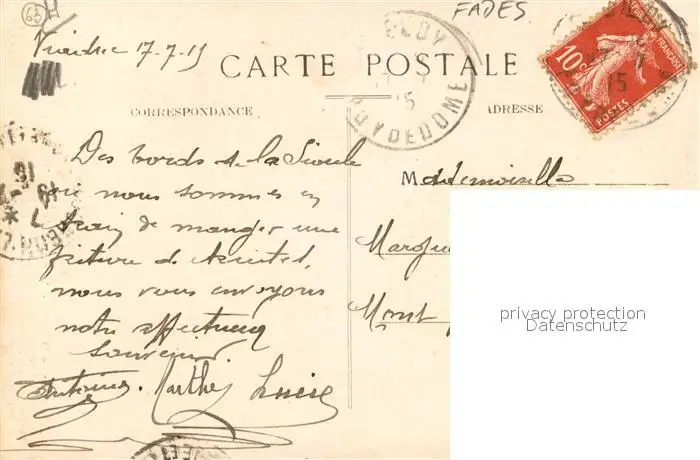 63
FADES
Viaduc 17-7-15
CARTE POSTALE
ELOY
15
PUY DE DOME
10c
POSTES
15
CORRESPONDANCE
ADRESSE
Des bords de la Sioule
où nous sommes en
train de manger une
friture
nous vous envoyons
notre affectueux
souvenir
Mademoiselle
Mont
privacy protection
Datenschutz
Antoine. Marthe Lucie